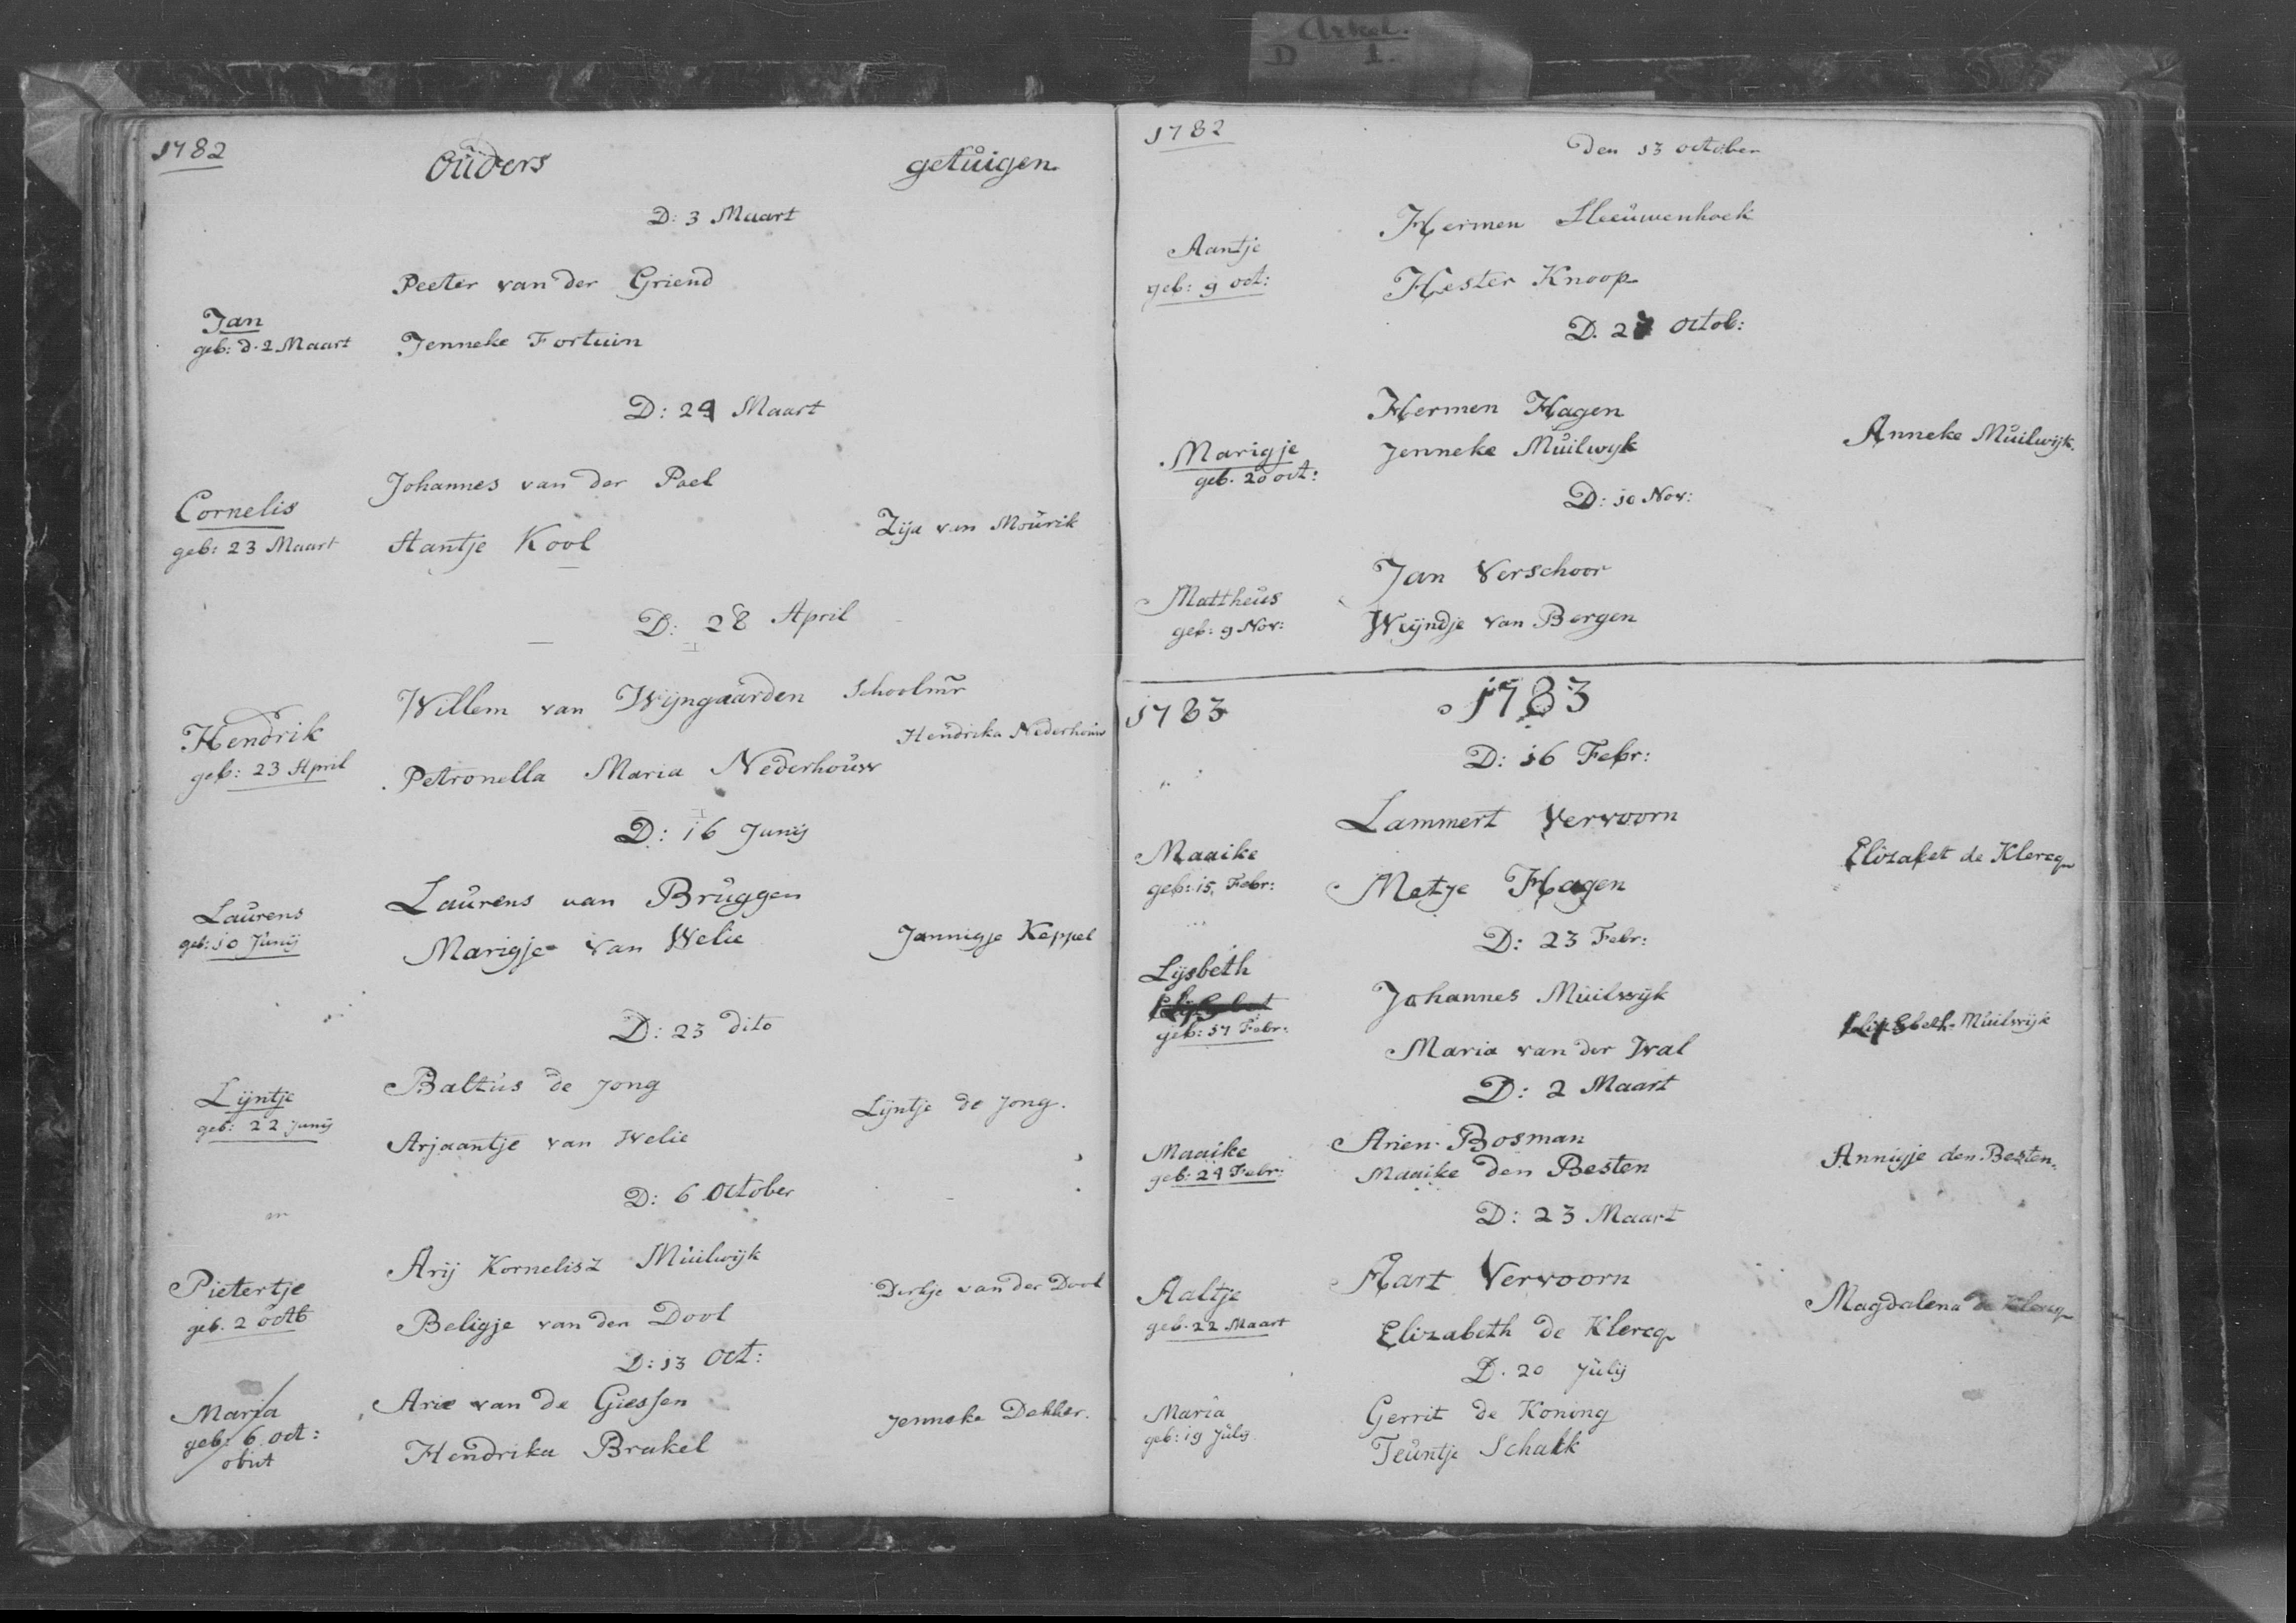 Arkel.
D 1.
1782
Ouders getuigen.
D: 3 Maart
Peeter van der Griend
Jan
geb: d. 2 Maart Jenneke Fortuin
D: 24 Maart
Johannes van der Pael
Cornelis Zija van Mourik
geb: 23 Maart Aantje Kool
D: 28 April
Willem van Wijngaarden Schoolmr
Hendrik Hendrika Nederhouw
geb: 23 April Petronella Maria Nederhouw
D: 16 Junij
Laurens van Bruggen
Laurens
geb: 10 Junij Marigje van Welie Jannigje Keppel
D: 23 dito
Baltus de Jong
Lijntje Lijntje de Jong.
geb: 22 Junij Arjaantje van Welie
D: 6 October
Arij Kornelisz Muilwijk
Pietertje Dirkje van der Dool
geb. 2 octb Beligje van den Dool
D: 13 Oct:
Maria Arie van de Giessen
geb: 6 oct: Jenneke Dekker.
obiit Hendrika Brakel
1782
Den 13 october
Hermen Sleeuwenhoek
Aantje
geb: 9 oct: Hester Knoop
D. 27 Octob:
Hermen Hagen
Marigje Jenneke Muilwyk Anneke Muilwijk.
geb. 20 oct:
D: 10 Nov:
Jan Verschoor
Mattheus
geb: 9 Nov: Wijndje van Bergen
1783 1783
D: 16 Febr:
Lammert Vervoorn
Maaike Elizabet de Klercq
geb: 15, Febr: Metje Hagen
D: 23 Febr:
Lijsbeth
Johannes Muilwijk
geb: 17 Febr: Muilwijk
Maria van der Wal
D: 2 Maart
Arien Bosman
Maaike Annigje den Besten.
geb: 24 Febr: Maaike den Besten
D: 23 Maart
Aart Vervoorn
Aaltje Magdalena de Klercq
geb. 22 Maart Elizabeth de Klercq
D. 20 Julij
Maria Gerrit de Koning
geb: 19 Julij Teuntje Schalk